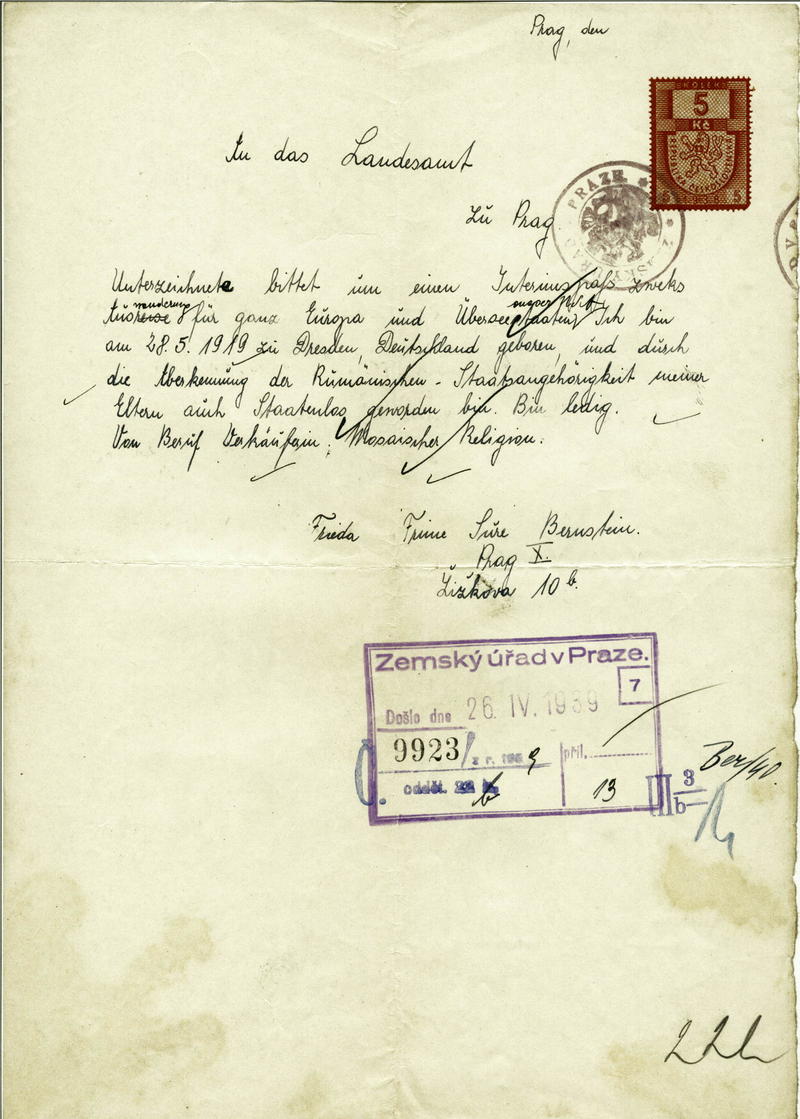 Prag, den
KOLEK
5
Kč
5 5
An das Landesamt
zu Prag
PRAZE
Unterzeichnete bittet um einen Interimspass zwecks
wanderung
Ausreise für ganz Europa und Überseestaaten Ich bin
am 28. 5. 1919 zu Dresden, Deutschland geboren, und durch
die Aberkennung der Rumänischen - Staatsangehörigkeit meiner
Eltern auch Staatenlos geworden bin. Bin ledig.
Von Beruf Verkäuferin, Mosaischer Religion.
Frieda Frime Sure Bernstein.
Prag X.
Žižkova 10 b.
Zemský úřad v Praze.
7
Došlo dne 26. IV. 1939
9923/ z r. 193 9
příl.
Č.
odděl. 22 b
13
III 3
b
Ber/40
22b